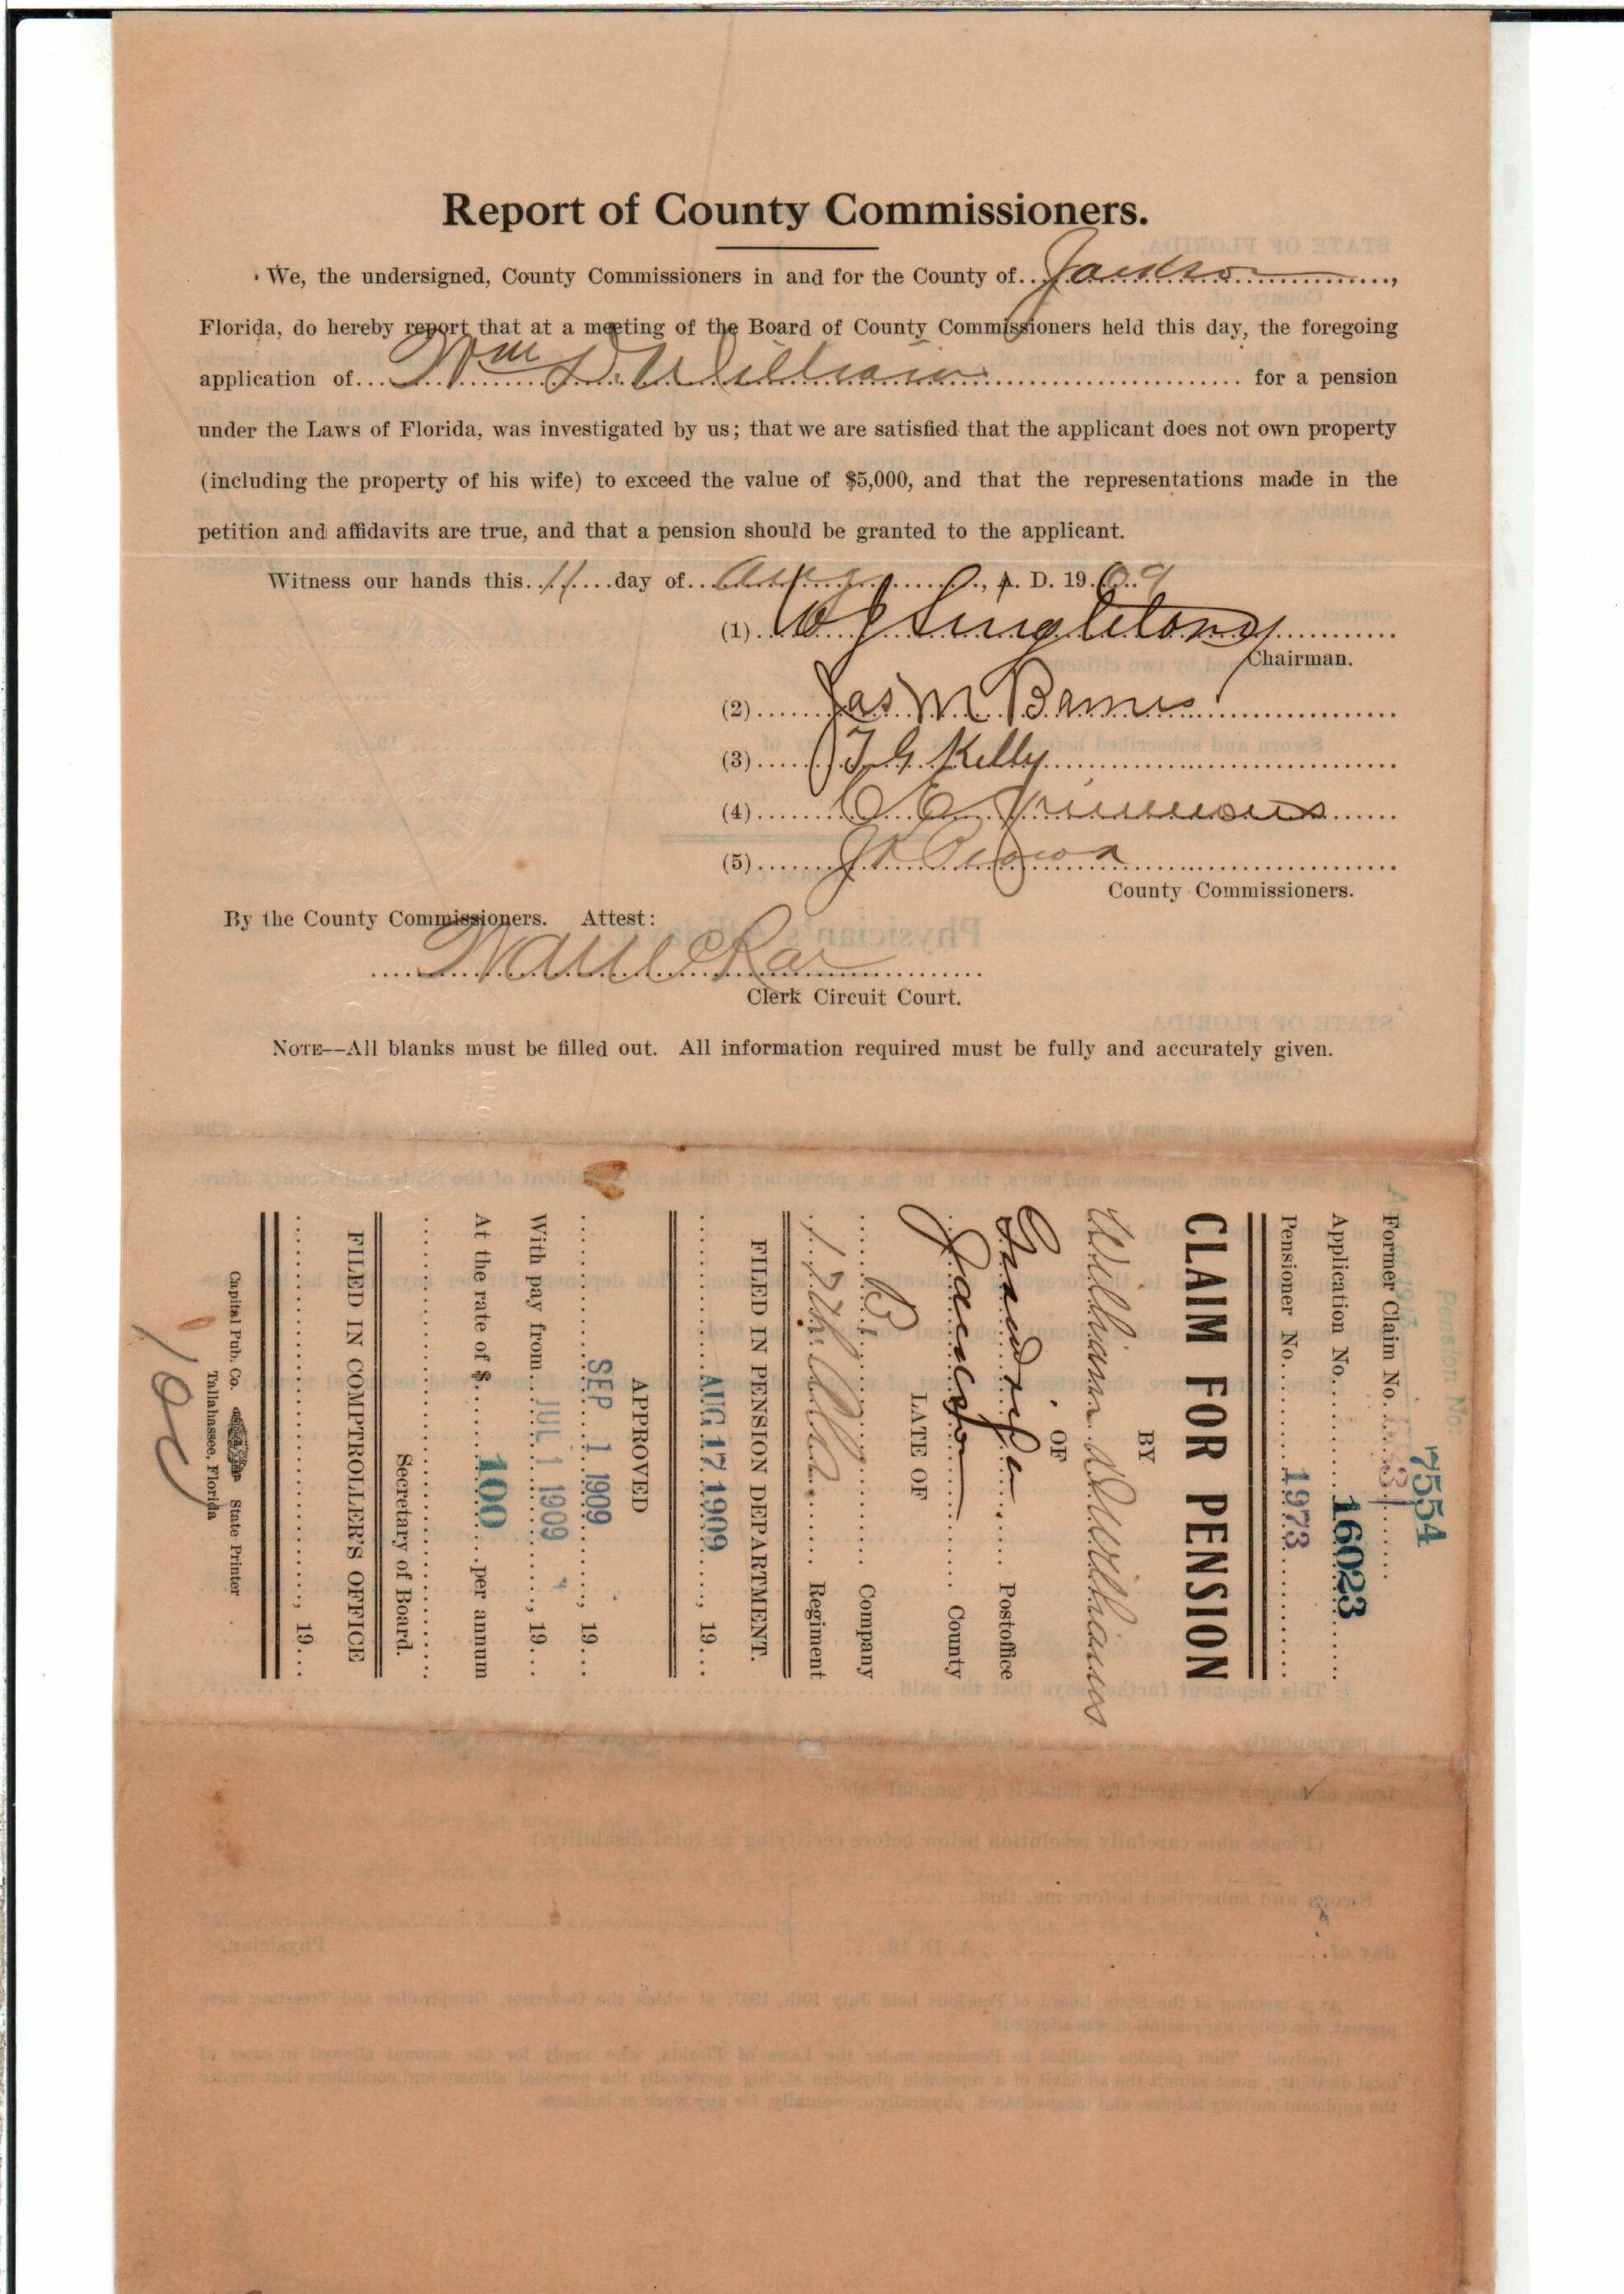 Report of County Commissioners.
We, the undersigned, County Commissioners in and for the County of Jackson,
Florida, do hereby report that at a meeting of the Board of County Commissioners held this day, the foregoing
application of Wm D. Williams for a pension
under the Laws of Florida, was investigated by us; that we are satisfied that the applicant does not own property
(including the property of his wife) to exceed the value of $5,000, and that the representations made in the
petition and affidavits are true, and that a pension should be granted to the applicant.
Witness our hands this 11 day of Aug, A. D. 1909
(1) Singletary
Chairman.
(2) Jas M Barnes
(3) T G Kelly
(4) C E Simmons
(5)
County Commissioners.
By the County Commissioners. Attest:
Clerk Circuit Court.
NOTE--All blanks must be filled out. All information required must be fully and accurately given.
Pension No:
7554
Former Claim No.
Application No. 16023
Pensioner No. 1973
CLAIM FOR PENSION
BY
William D. Williams
OF
Grand Ridge Postoffice
Jackson County
LATE OF
B Company
Regiment
FILED IN PENSION DEPARTMENT.
AUG 17 1909, 19
APPROVED
SEP 1 1909, 19
With pay from JUL 1 1909, 19
At the rate of $ 100 per annum
Secretary of Board.
FILED IN COMPTROLLER'S OFFICE
, 19
Capital Pub. Co. State Printer
Tallahassee, Florida